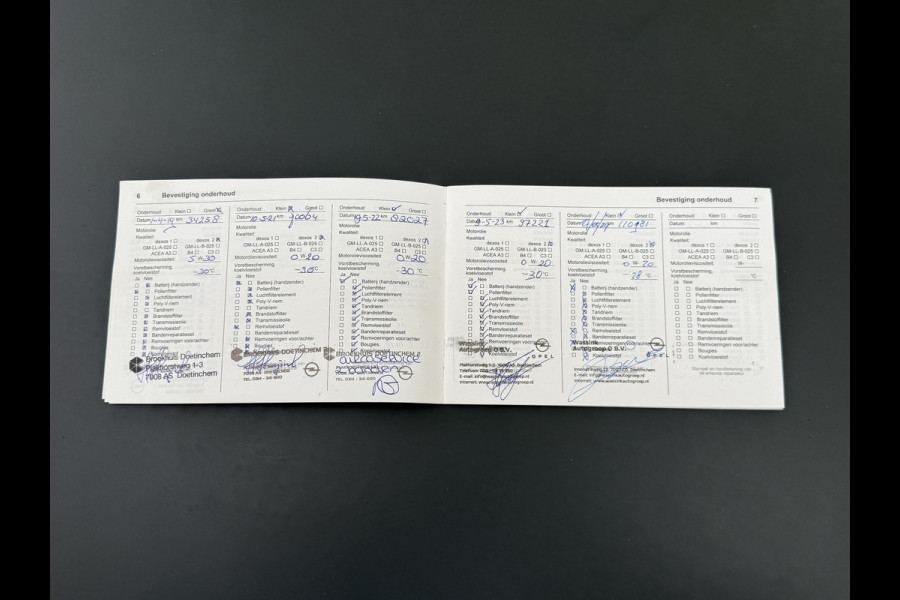 6 Bevestiging onderhoud
Onderhoud: Klein Groot
Datum km 34258
Motorolie
Kwaliteit:
dexos 1 dexos 2
GM-LL-A-025 GM-LL-B-025
ACEA A3 B4 C3
Motorolieviscositeit: 5 W 30
Vorstbescherming
koelvloeistof -30°C
Ja Nee
Batterij (handzender)
Pollenfilter
Luchtfilterelement
Poly-V-riem
Tandriem
Brandstoffilter
Transmissieolie
Remvloeistof
Bandenreparatieset
Remvoeringen voor/achter
Bougies
Broekhuis Doetinchem
Plakhorstweg 1-3
7008 AS Doetinchem
Onderhoud: Klein Groot
Datum 10-5-21 km 70064
Motorolie
Kwaliteit:
dexos 1 dexos 2
GM-LL-A-025 GM-LL-B-025
ACEA A3 B4 C3
Motorolieviscositeit: 0 W 20
Vorstbescherming
koelvloeistof -30°C
Ja Nee
Batterij (handzender)
Pollenfilter
Luchtfilterelement
Poly-V-riem
Tandriem
Brandstoffilter
Transmissieolie
Remvloeistof
Bandenreparatieset
Remvoeringen voor/achter
Bougies
BROEKHUIS DOETINCHEM
Onderhoud: Klein Groot
Datum 19-5-22 km 82027
Motorolie
Kwaliteit:
dexos 1 dexos 2
GM-LL-A-025 GM-LL-B-025
ACEA A3 B4 C3
Motorolieviscositeit: 0 W 20
Vorstbescherming
koelvloeistof -30°C
Ja Nee
Batterij (handzender)
Pollenfilter
Luchtfilterelement
Poly-V-riem
Tandriem
Brandstoffilter
Transmissieolie
Remvloeistof
Bandenreparatieset
Remvoeringen voor/achter
Bougies
BROEKHUIS DOETINCHEM
Bevestiging onderhoud 7
Onderhoud: Klein Groot
Datum 9-5-23 km 97221
Motorolie
Kwaliteit:
dexos 1 dexos 2
GM-LL-A-025 GM-LL-B-025
ACEA A3 B4 C3
Motorolieviscositeit: 0 W 20
Vorstbescherming
koelvloeistof -30°C
Ja Nee
Batterij (handzender)
Pollenfilter
Luchtfilterelement
Poly-V-riem
Tandriem
Brandstoffilter
Transmissieolie
Remvloeistof
Bandenreparatieset
Remvoeringen voor/achter
Bougies
Koelvloeistof
Autogroep B.V.
OPEL
Onderhoud: Klein Groot
Datum km 110981
Motorolie
Kwaliteit:
dexos 1 dexos 2
GM-LL-A-025 GM-LL-B-025
ACEA A3 B4 C3
Motorolieviscositeit: 0 W 20
Vorstbescherming
koelvloeistof -28°C
Ja Nee
Batterij (handzender)
Pollenfilter
Luchtfilterelement
Poly-V-riem
Tandriem
Brandstoffilter
Transmissieolie
Remvloeistof
Bandenreparatieset
Remvoeringen voor/achter
Wassink
Autogroep B.V.
Koelvloeistof
OPEL
Onderhoud: Klein Groot
Datum km
Motorolie
Kwaliteit:
dexos 1 dexos 2
GM-LL-A-025 GM-LL-B-025
ACEA A3 B4 C3
Motorolieviscositeit: W-
Vorstbescherming
koelvloeistof °C
Ja Nee
Batterij (handzender)
Pollenfilter
Luchtfilterelement
Poly-V-riem
Tandriem
Brandstoffilter
Transmissieolie
Remvloeistof
Bandenreparatieset
Remvoeringen voor/achter
Bougies
Koelvloeistof
Stempel en handtekening van
de erkende reparateur